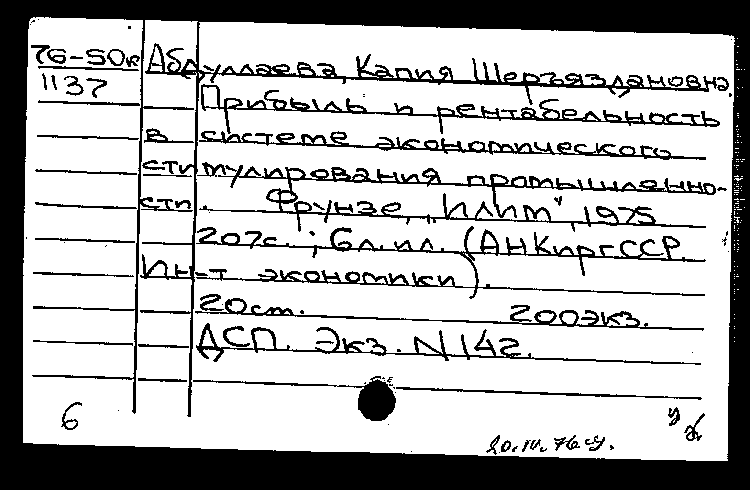 76-50к Абдуллаева, Капия Шеръяздановна.
1137 Прибыль и рентабельность
в системе экономического
стимулирования промышленно-
сти. Фрунзе, „Илим", 1975
207с.; 6л.ил. (АН КиргССР.
Ин-т экономики).
20cm. 200экз.
ДСП. Экз. N 142.
6
20.IV.76